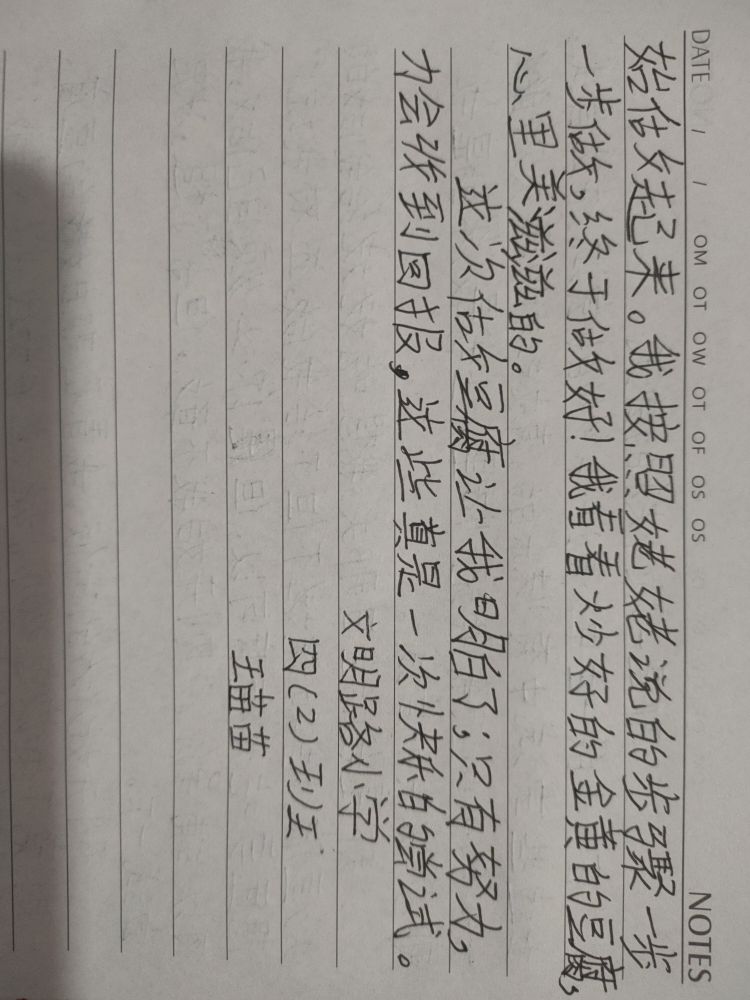 DATE / / OM OT OW OT OF OS OS NOTES
始做起来。我按照姥姥说的步骤一步
一步做,终于做好!我看着炒好的金黄的豆腐,
心里美滋滋的。
这次做豆腐让我明白了,只有努力,
力会收到回报,这些真是一次快乐的尝试。
文明路小学
四(2)班
王苗苗